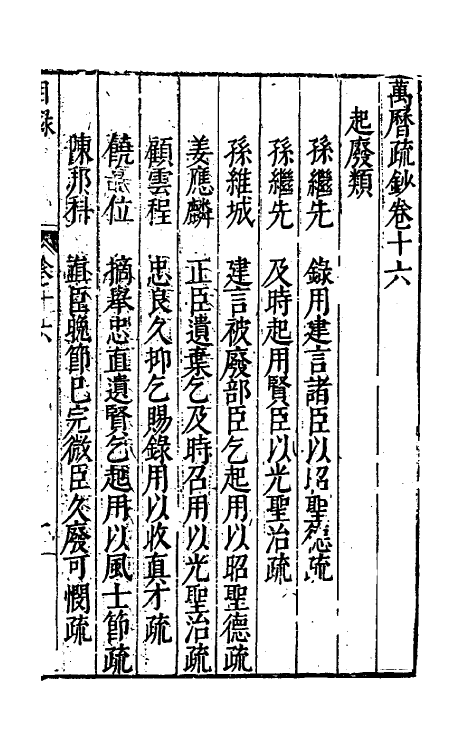 萬曆疏鈔卷十六
起廢類
孫繼先　錄用建言諸臣以昭聖德疏
孫繼先　及時起用賢臣以光聖治疏
孫維城　建言被廢部臣乞起用以昭聖德疏
姜應麟　正臣遺棄乞及時召用以光聖治疏
顧雲程　忠良久抑乞賜錄用以收真才疏
饒位　摘舉忠直遺賢乞起用以風士節疏
陳邦科　直臣晚節已完微臣久廢可憫疏
目錄　卷十六　一